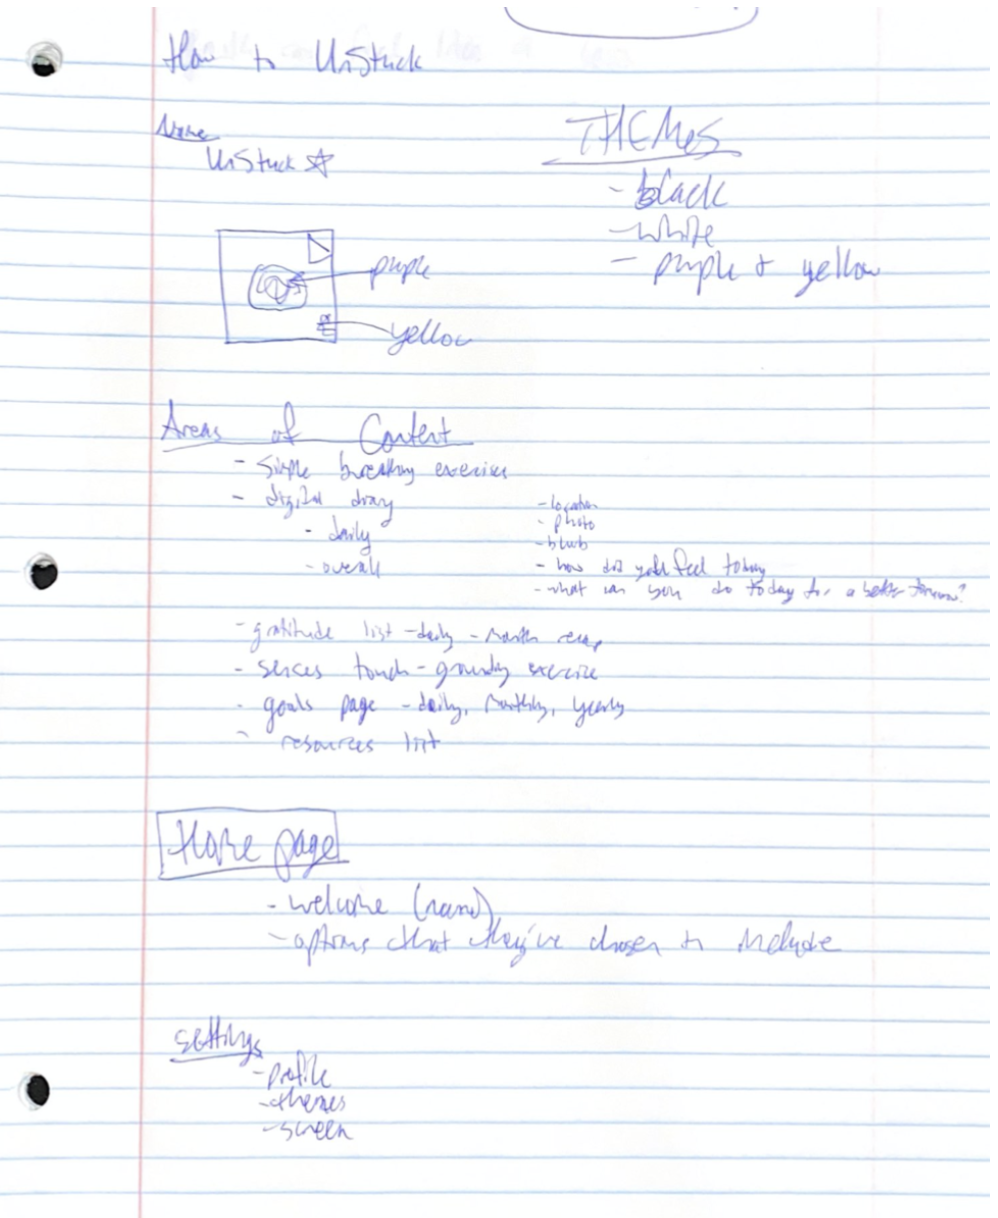 How to UnStuck
Name
UnStuck ☆
THEMES
- black
- white
- purple & yellow
purple
yellow
Areas of Content
- Simple breathing exercises
- digital diary
- daily
- overall
- location
- photo
- blurb
- how did you feel today
- what can you do today for a better tomorrow?
- gratitude list - daily - month recap
- senses touch - grounding exercise
- goals page - daily, monthly, yearly
- resources list
Home page
- welcome (name)
- options that they've chosen to include
settings
- profile
- themes
- screen